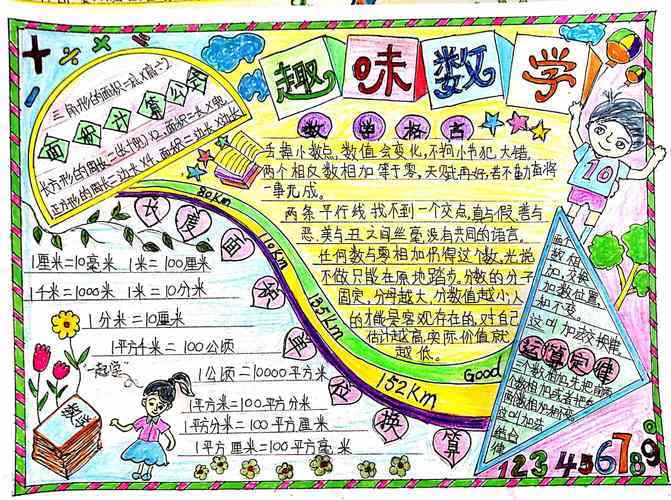 趣味数学
+ ÷ × −
三角形的面积=底×高÷2
面积计算公式
长方形的周长=(长+宽)×2,面积=长×宽
正方形的周长=边长×4 面积=边长×边长
数学格言
丢掉小数点,数值会变化,不拘小节犯大错。
两个相反数相加等于零,天赋再好,若不勤奋将
一事无成。
两条平行线找不到一个交点,真与假、善与
恶、美与丑之间丝毫没有共同的语言。
任何数与零相加仍得这个数,光说
不做只能在原地踏步。分数的分子
固定,分母越大,分数值越小,人
的才能是客观存在的,对自己
估计越高,实际价值就
越低。
80km
110km
135km
152km
Good
长度面积单位换算
1厘米=10毫米 1米=100厘米
1千米=1000米 1米=10分米
1分米=10厘米
1平方千米=100公顷
1公顷=10000平方米
1平方米=100平方分米
1平方分米=100平方厘米
1平方厘米=100平方毫米
"一起学"
数学
10
两个
数相
加,交换
加数位置,
和不变。
这叫加法交换律。
运算定律
三个数相加,先把前两
个数相加或者把后
两个数相加,和不变。
这叫加法
结合
律
123456789